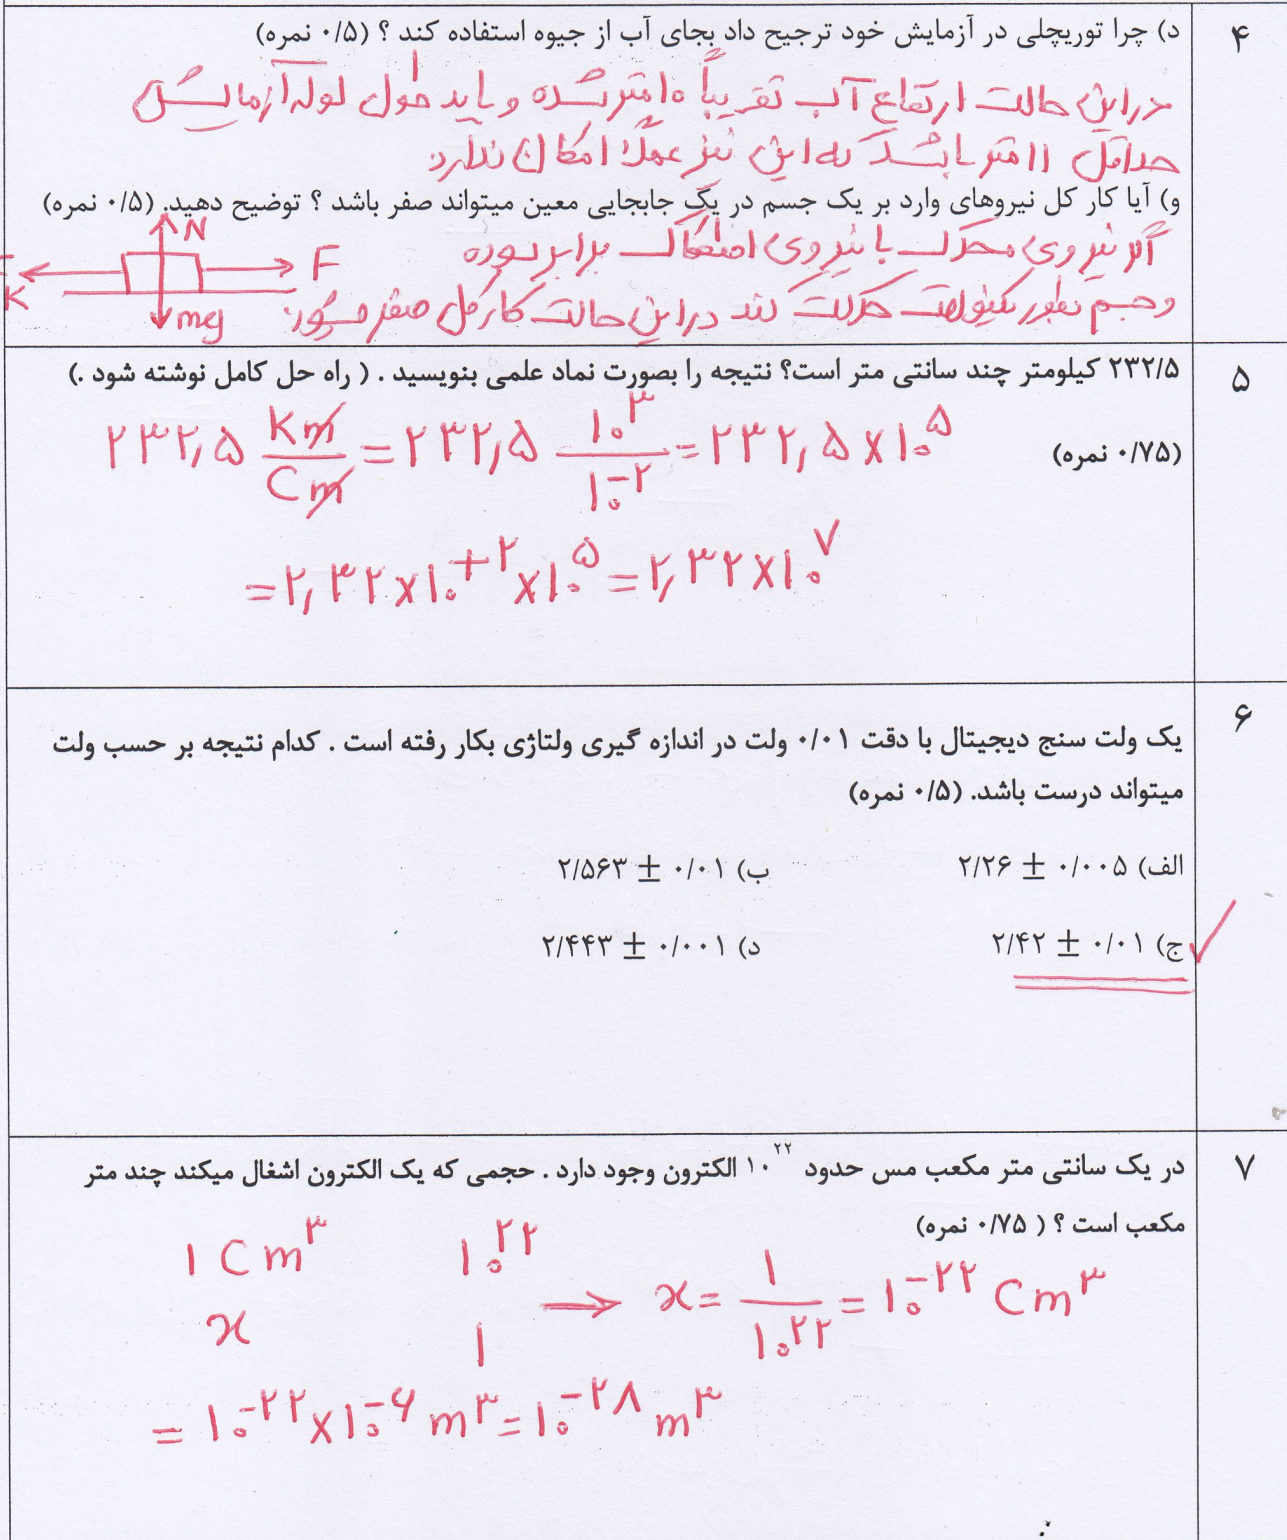 ۴
د) چرا توریچلی در آزمایش خود ترجیح داد بجای آب از جیوه استفاده کند ؟ (۰/۵ نمره)
دراین حالت ارتفاع آب تقریباً ۱۰متر شده و باید طول لوله آزمایش
حداقل ۱۱ متر باشد که این نیز عملاً امکان ندارد
و) آیا کار کل نیروهای وارد بر یک جسم در یک جابجایی معین میتواند صفر باشد ؟ توضیح دهید. (۰/۵ نمره)
اگر نیروی محرک با نیروی اصطکاک برابر بوده
و جسم بطور یکنواخت حرکت کند دراین حالت کار کل صفر میشود.
N
F
K
mg
۵
۲۳۲/۵ کیلومتر چند سانتی متر است؟ نتیجه را بصورت نماد علمی بنویسید . ( راه حل کامل نوشته شود .)
(۰/۷۵ نمره)
۲۳۲,۵ Km/Cm = ۲۳۲,۵ ۱۰^۳/۱۰^-۲ = ۲۳۲,۵ × ۱۰^۵
= ۲,۳۲×۱۰^+۲ × ۱۰^۵ = ۲,۳۲×۱۰^۷
۶
یک ولت سنج دیجیتال با دقت ۰/۰۱ ولت در اندازه گیری ولتاژی بکار رفته است . کدام نتیجه بر حسب ولت
میتواند درست باشد. (۰/۵ نمره)
الف) ۲/۲۶ ± ۰/۰۰۵ ب) ۲/۵۶۳ ± ۰/۰۱
ج) ۲/۴۲ ± ۰/۰۱ د) ۲/۴۴۳ ± ۰/۰۰۱
۷
در یک سانتی متر مکعب مس حدود ۱۰^۲۲ الکترون وجود دارد . حجمی که یک الکترون اشغال میکند چند متر
مکعب است ؟ ( ۰/۷۵ نمره)
۱ Cm^۳ ۱۰^۲۲
x ۱ → x = ۱/۱۰^۲۲ = ۱۰^-۲۲ Cm^۳
= ۱۰^-۲۲ × ۱۰^-۶ m^۳ = ۱۰^-۲۸ m^۳